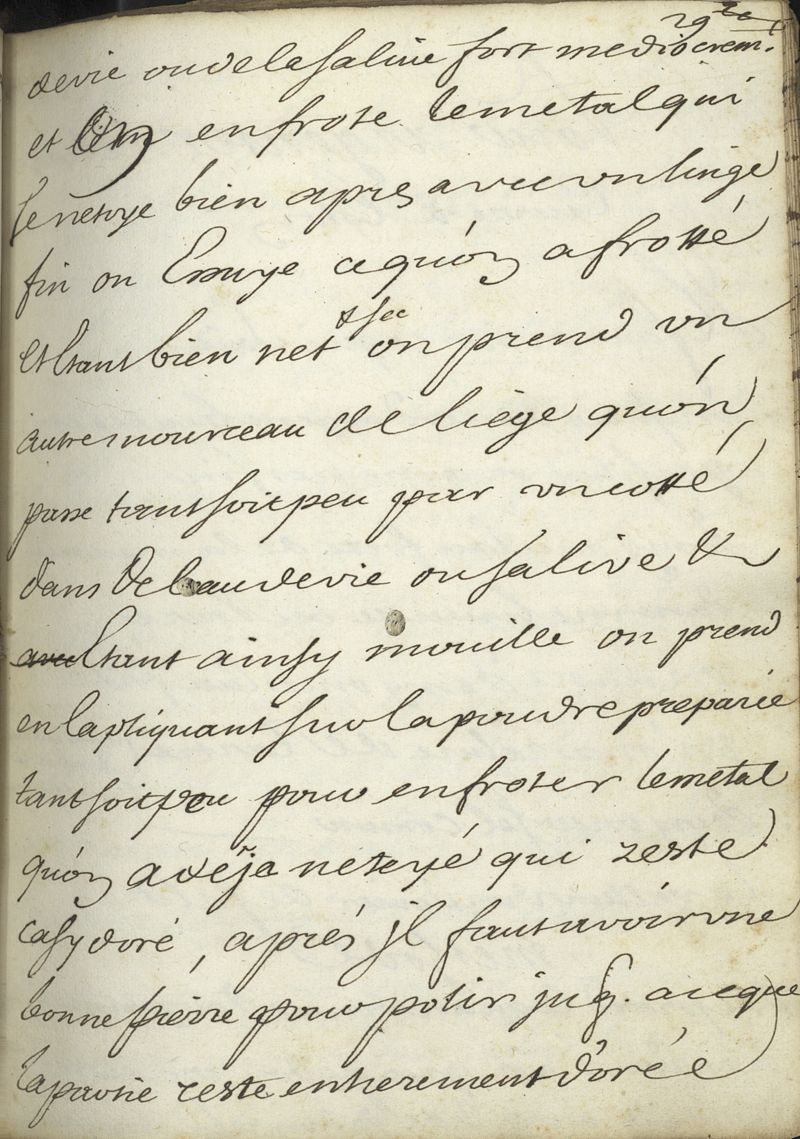 devie ou de la salive fort mediocrem.
et en frote le metal qui
le netoye bien apres avec un linge
fin on Essuye ce quón a frotté
et Etant bien net & sec on prend un
autre mourceau de liége quón
passe tant soit peu par un cotté
dans De l'eau de vie ou salive &
avec Etant ainsy mouille on prend
en l'aptiquant sur la poudre preparée
tant soit peu pour en froter le metal
quón a déja netoyé qui reste
casy doré, aprés jl faut avoir une
bonne pierre pour polir jusq. a ce que
la partie reste entierement dorée